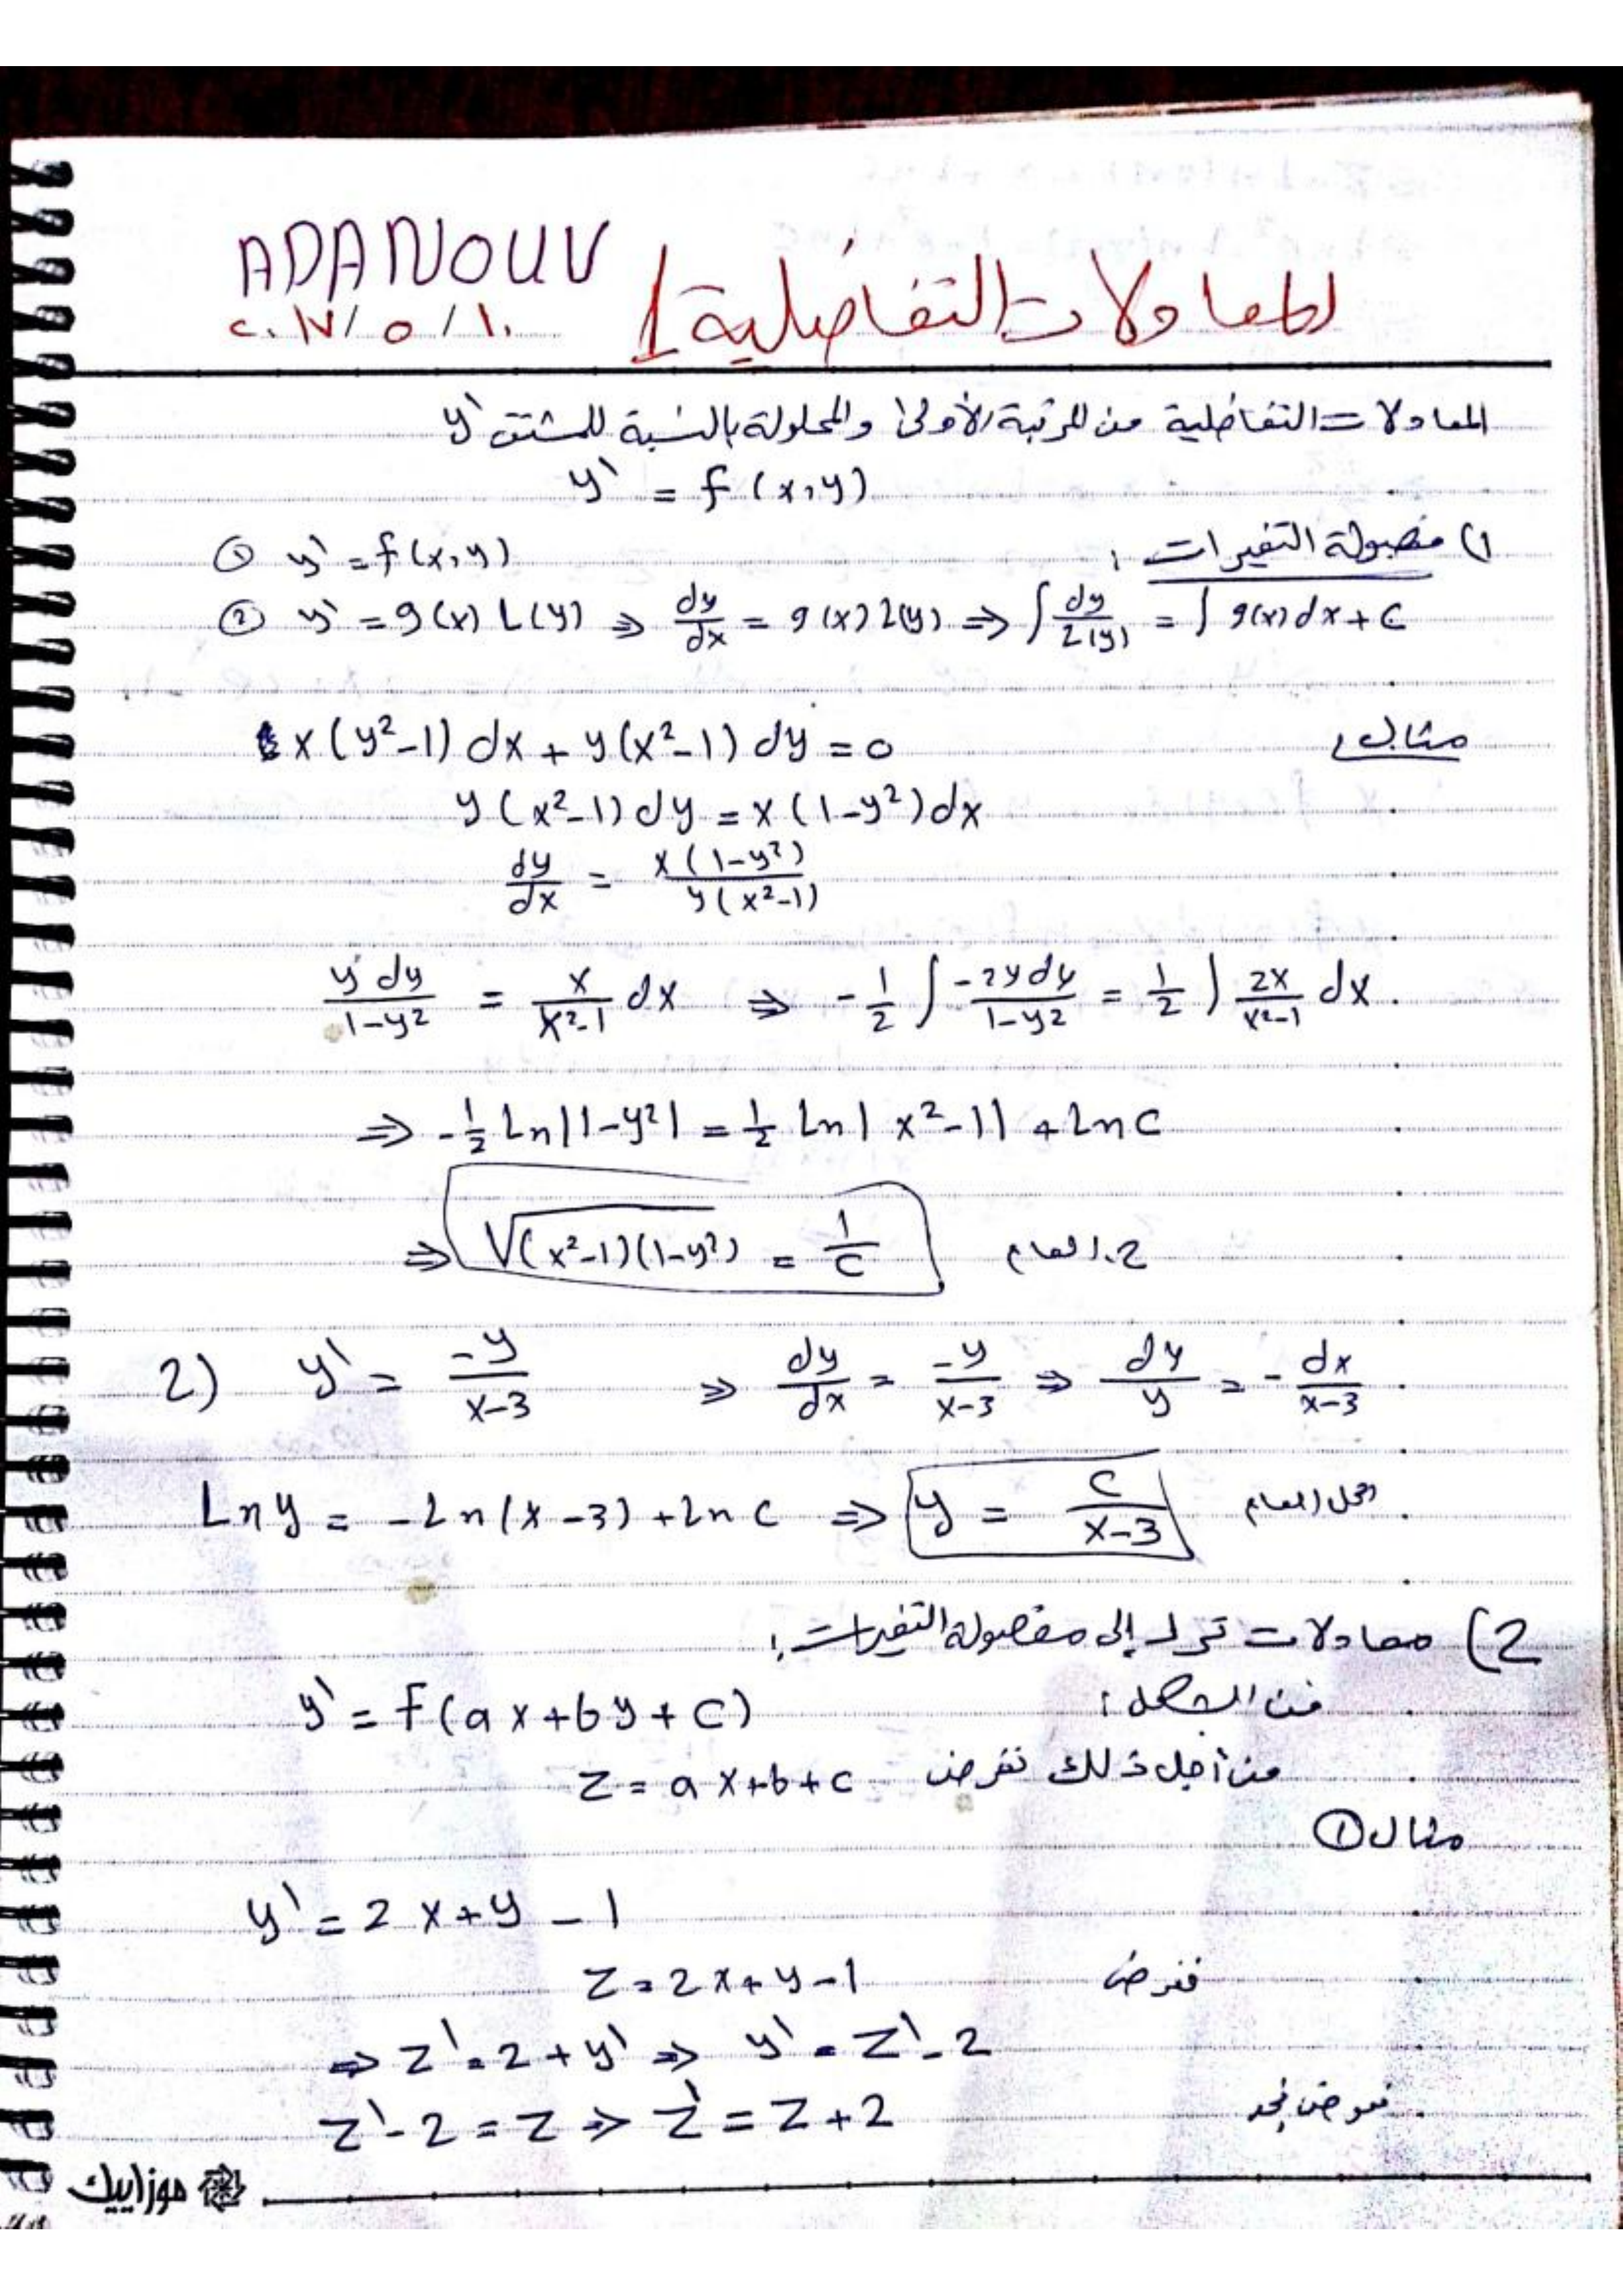 ADANOUV
المعادلات التفاضلية 1
٢٠١٧/٥/١٠
المعادلات التفاضلية من المرتبة الأولى والمحلولة بالنسبة للمشتق y'
y' = f(x,y)
1) مفصولة التغيرات :
① y' = f(x,y)
② y' = g(x) L(y) ⇒ dy/dx = g(x) L(y) ⇒ ∫ dy/L(y) = ∫ g(x) dx + C
مثال :
x(y²-1) dx + y(x²-1) dy = 0
y(x²-1) dy = x(1-y²) dx
dy/dx = x(1-y²)/y(x²-1)
y dy/1-y² = x/x²-1 dx ⇒ -1/2 ∫ -2y dy/1-y² = 1/2 ∫ 2x/x²-1 dx
⇒ -1/2 Ln|1-y²| = 1/2 Ln|x²-1| + Ln C
⇒ √(x²-1)(1-y²) = 1/C ح. العام
2) y' = -y/x-3 ⇒ dy/dx = -y/x-3 ⇒ dy/y = - dx/x-3
Ln y = -Ln(x-3) + Ln C ⇒ y = C/x-3 الحل العام
2) معادلات ترد إلى مفصولة التغيرات :
من الشكل : y' = f(ax+by+c)
من أجل ذلك نفرض z = ax+b+c
مثال ①
y' = 2x+y-1
نفرض z = 2x+y-1
⇒ z' = 2+y' ⇒ y' = z'-2
نعوض نجد z'-2 = z ⇒ z' = z+2
موزاييك